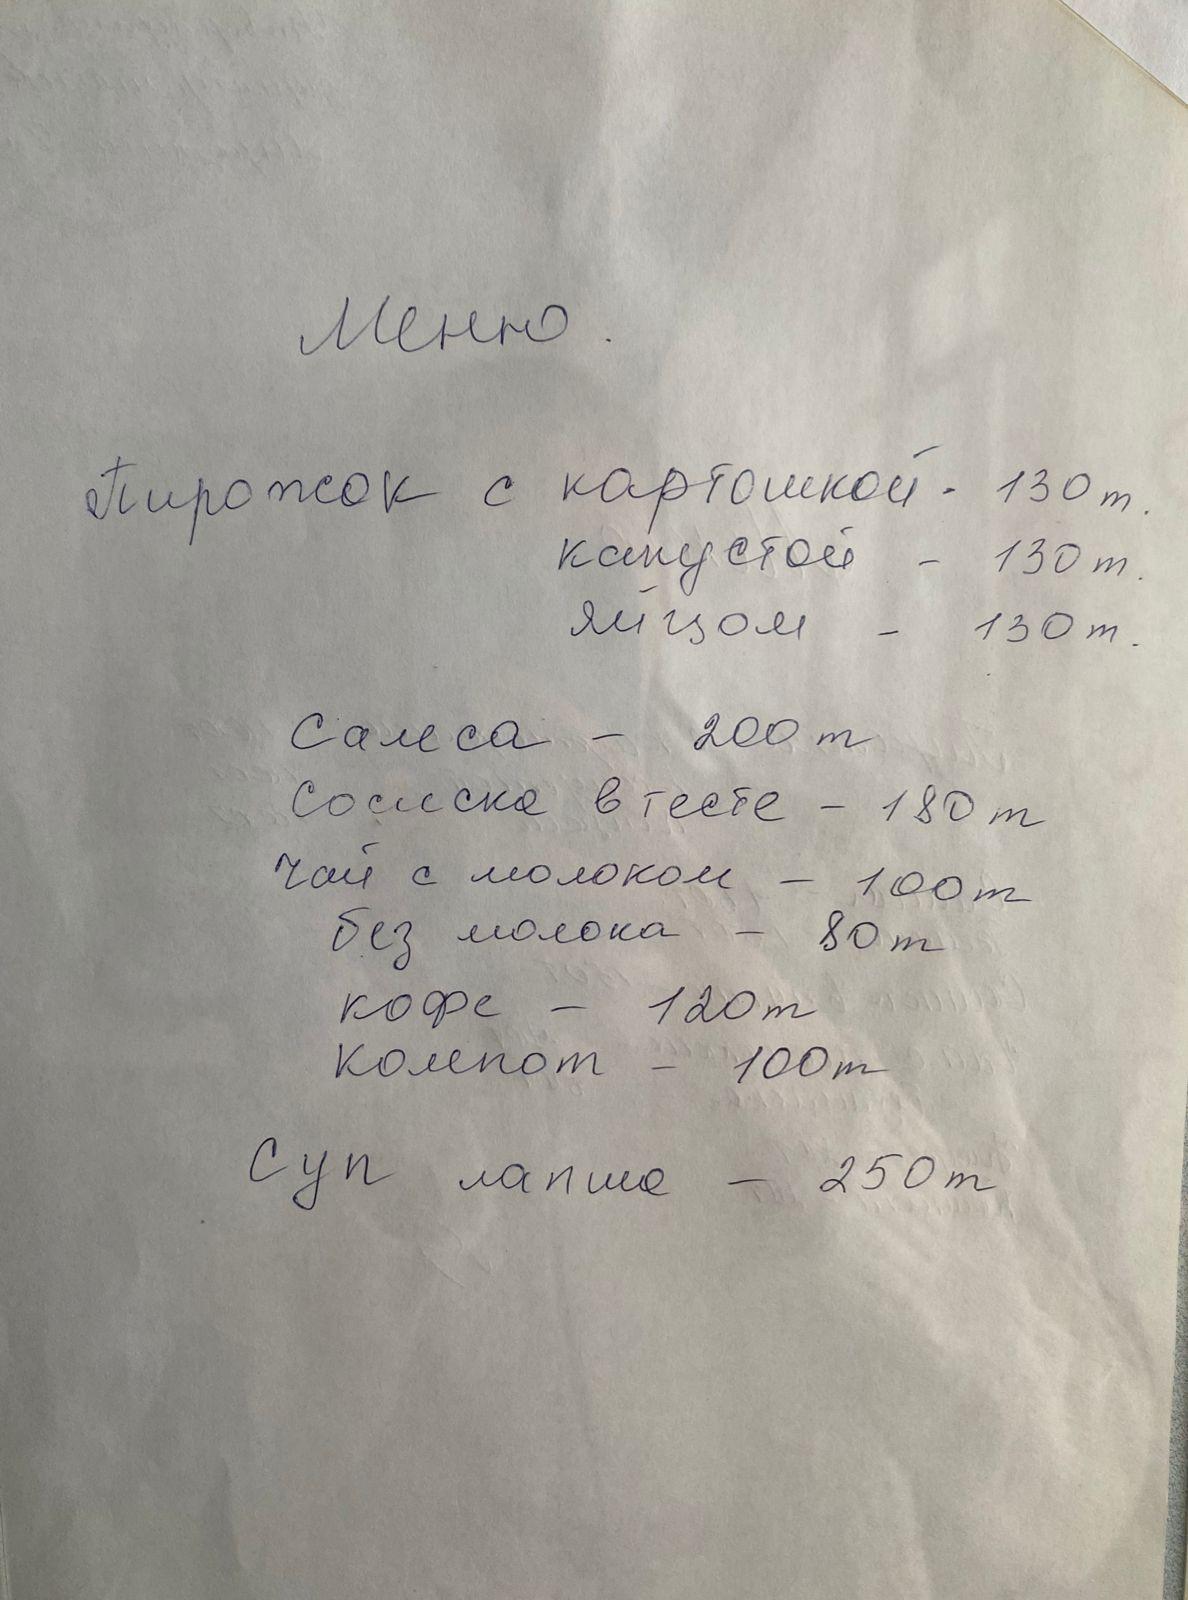 Меню.
Пирожок с картошкой - 130 т.
капустой - 130 т.
яйцом - 130 т.
Самса - 200 т
Сосиска в тесте - 180 т
Чай с молоком - 100 т
без молока - 80 т
кофе - 120 т
Компот - 100 т
Суп лапша - 250 т